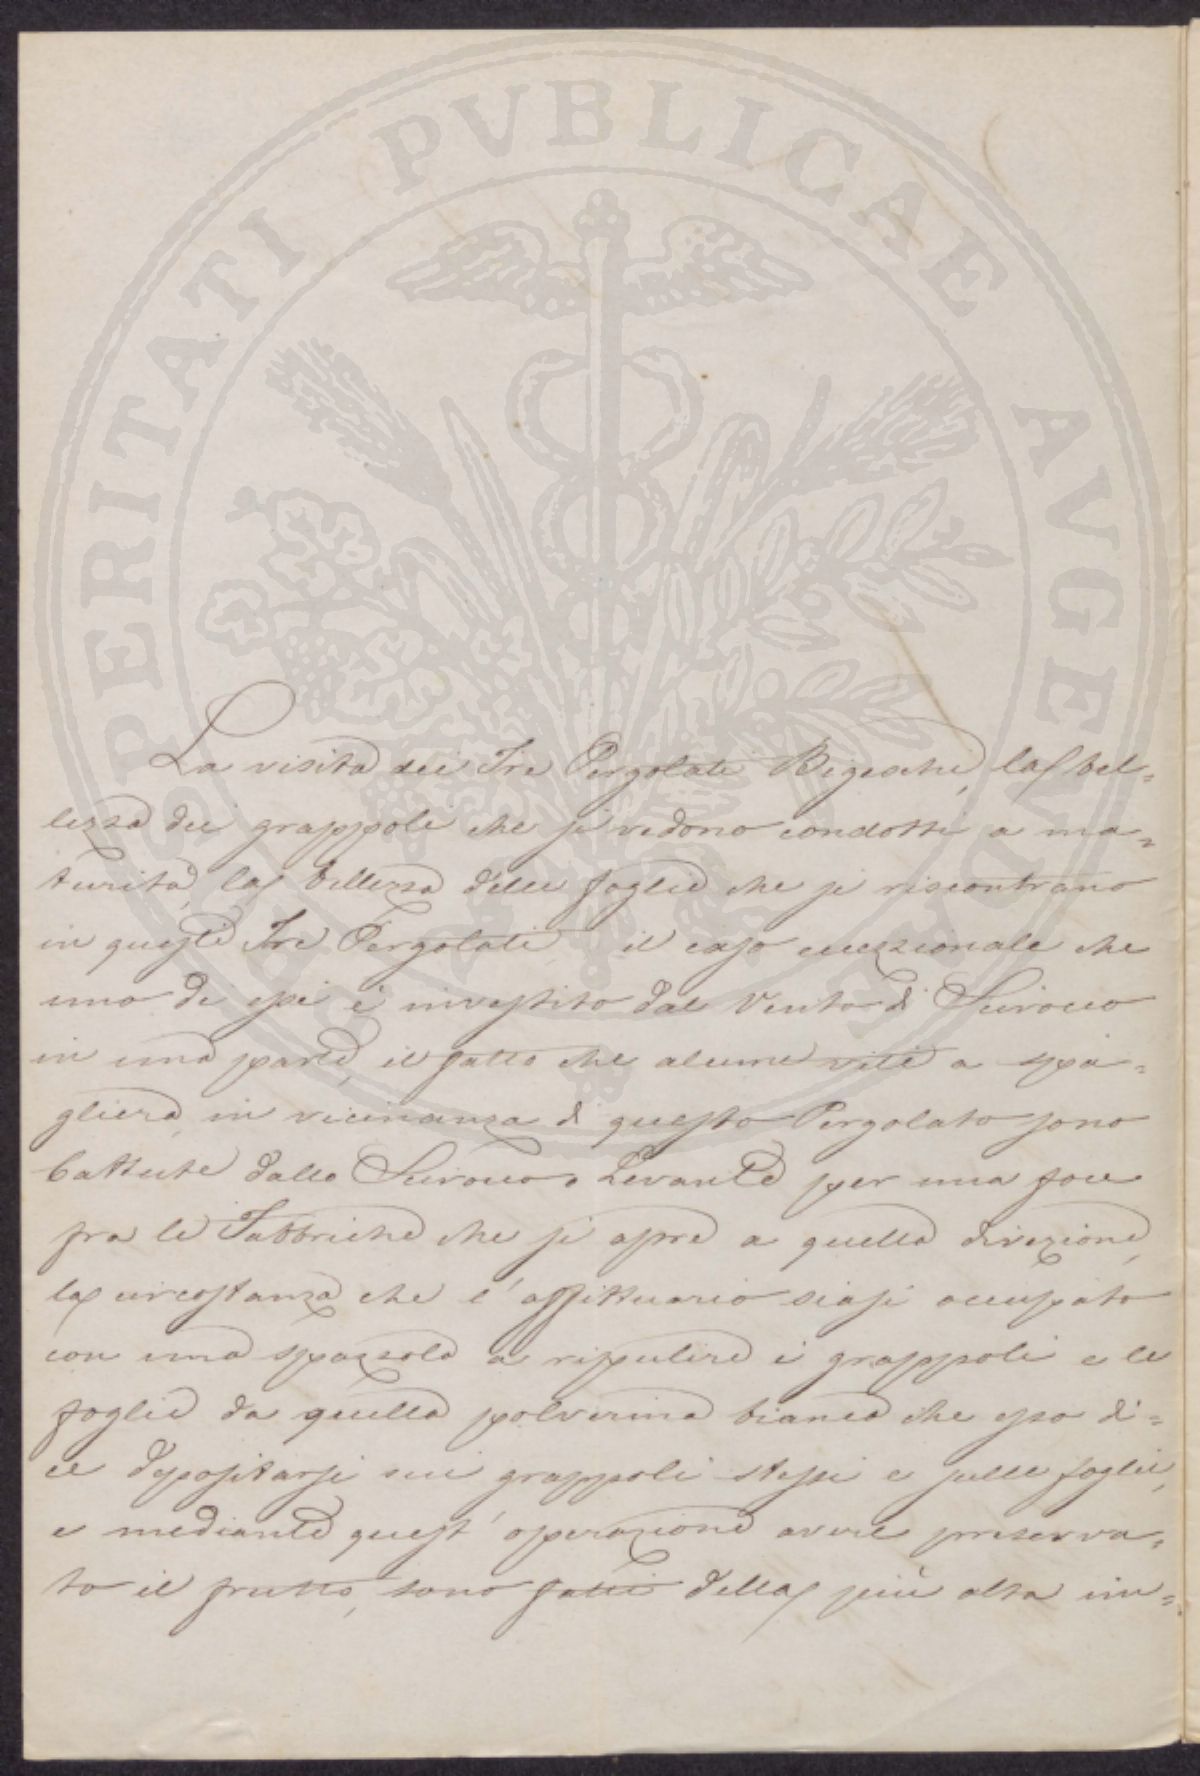 PROSPERITATI PVBLICAE AVGENDAE
La visita dei Tre Pergolati Bigeschi, la bel=
lezza dei grappoli che si vedono condotti a ma=
turità, la bellezza delle foglie che si riscontrano
in questi Tre Pergolati, il caso eccezionale che
uno di essi è investito dal Vento di Scirocco
in una parte, il fatto che alcune viti a spa=
gliera in vicinanza di questo Pergolato sono
battute dallo Scirocco, Levante per una foce
fra le Fabbriche che si apre a quella direzione,
la circostanza che l'affittuario siasi occupato
con una spazzola a ripulire i grappoli e le
foglie da quella polverina bianca che esso di=
ce depositarsi sui grappoli stessi e sulle foglie,
e mediante quest'operazione avere preserva=
to il frutto, sono fatti della più alta im=